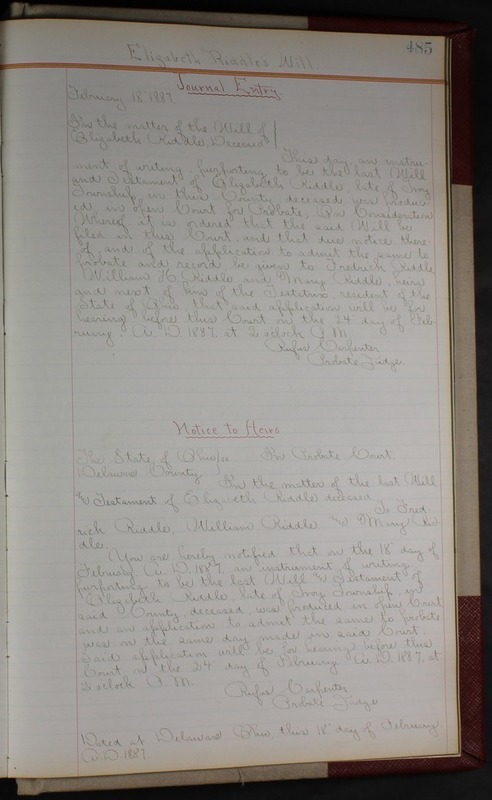 485
Elizabeth Riddle's Will.
Journal Entry.
February 18" 1887
In the matter of the Will of
Elizabeth Riddle, Deceased
This day an instru-
ment of writing, purporting to be the last Will
and Testament of Elizabeth Riddle late of Troy
Township in this County deceased was produc-
ed in open Court for Probate, On Consideration
Whereof it is ordered that the said Will be
filed in this Court, and that due notice there-
of, and of the application to admit the same to
probate and record be given to Fredrick Riddle
William H. Riddle and Mary Riddle, heirs
and next of kin of the Testatrix, resident of the
State of Ohio, that said application will be for
hearing before this Court on the 24" day of Feb-
ruary A. D. 1887 at 2 o'clock P. M.
Rufus Carpenter
Probate Judge.
Notice to Heirs
The State of Ohio ss In Probate Court.
Delaware County In the matter of the last Will
& Testament of Elizabeth Riddle deceased
To Fred-
rich Riddle, William Riddle & Mary Rid-
dle.
You are hereby notified that on the 18" day of
February A. D. 1887, an instrument of writing,
purporting to be the last Will & Testament of
Elizabeth Riddle, late of Troy Township, in
said County, deceased, was produced in open Court
and an application to admit the same to probate
was on the same day made in said Court.
Said application will be for hearing before this
Court, on the 24" day of February A. D. 1887, at
o'clock P. M.
Rufus Carpenter
Probate Judge
Dated at Delaware Ohio, this 18" day of February
A. D. 1887